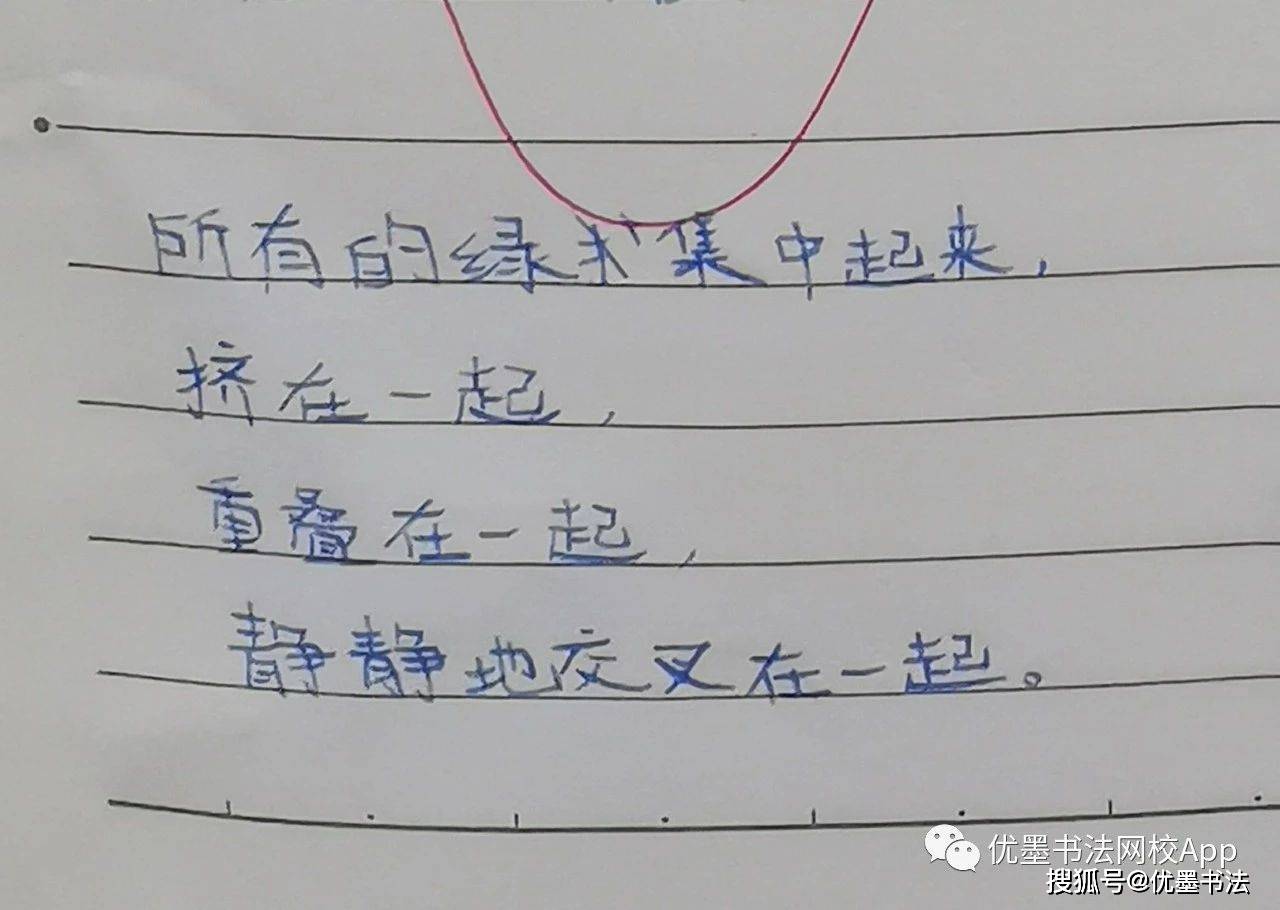 所有的绿才集中起来，
挤在一起，
重叠在一起，
静静地交叉在一起。
优墨书法网校App
搜狐号@优墨书法